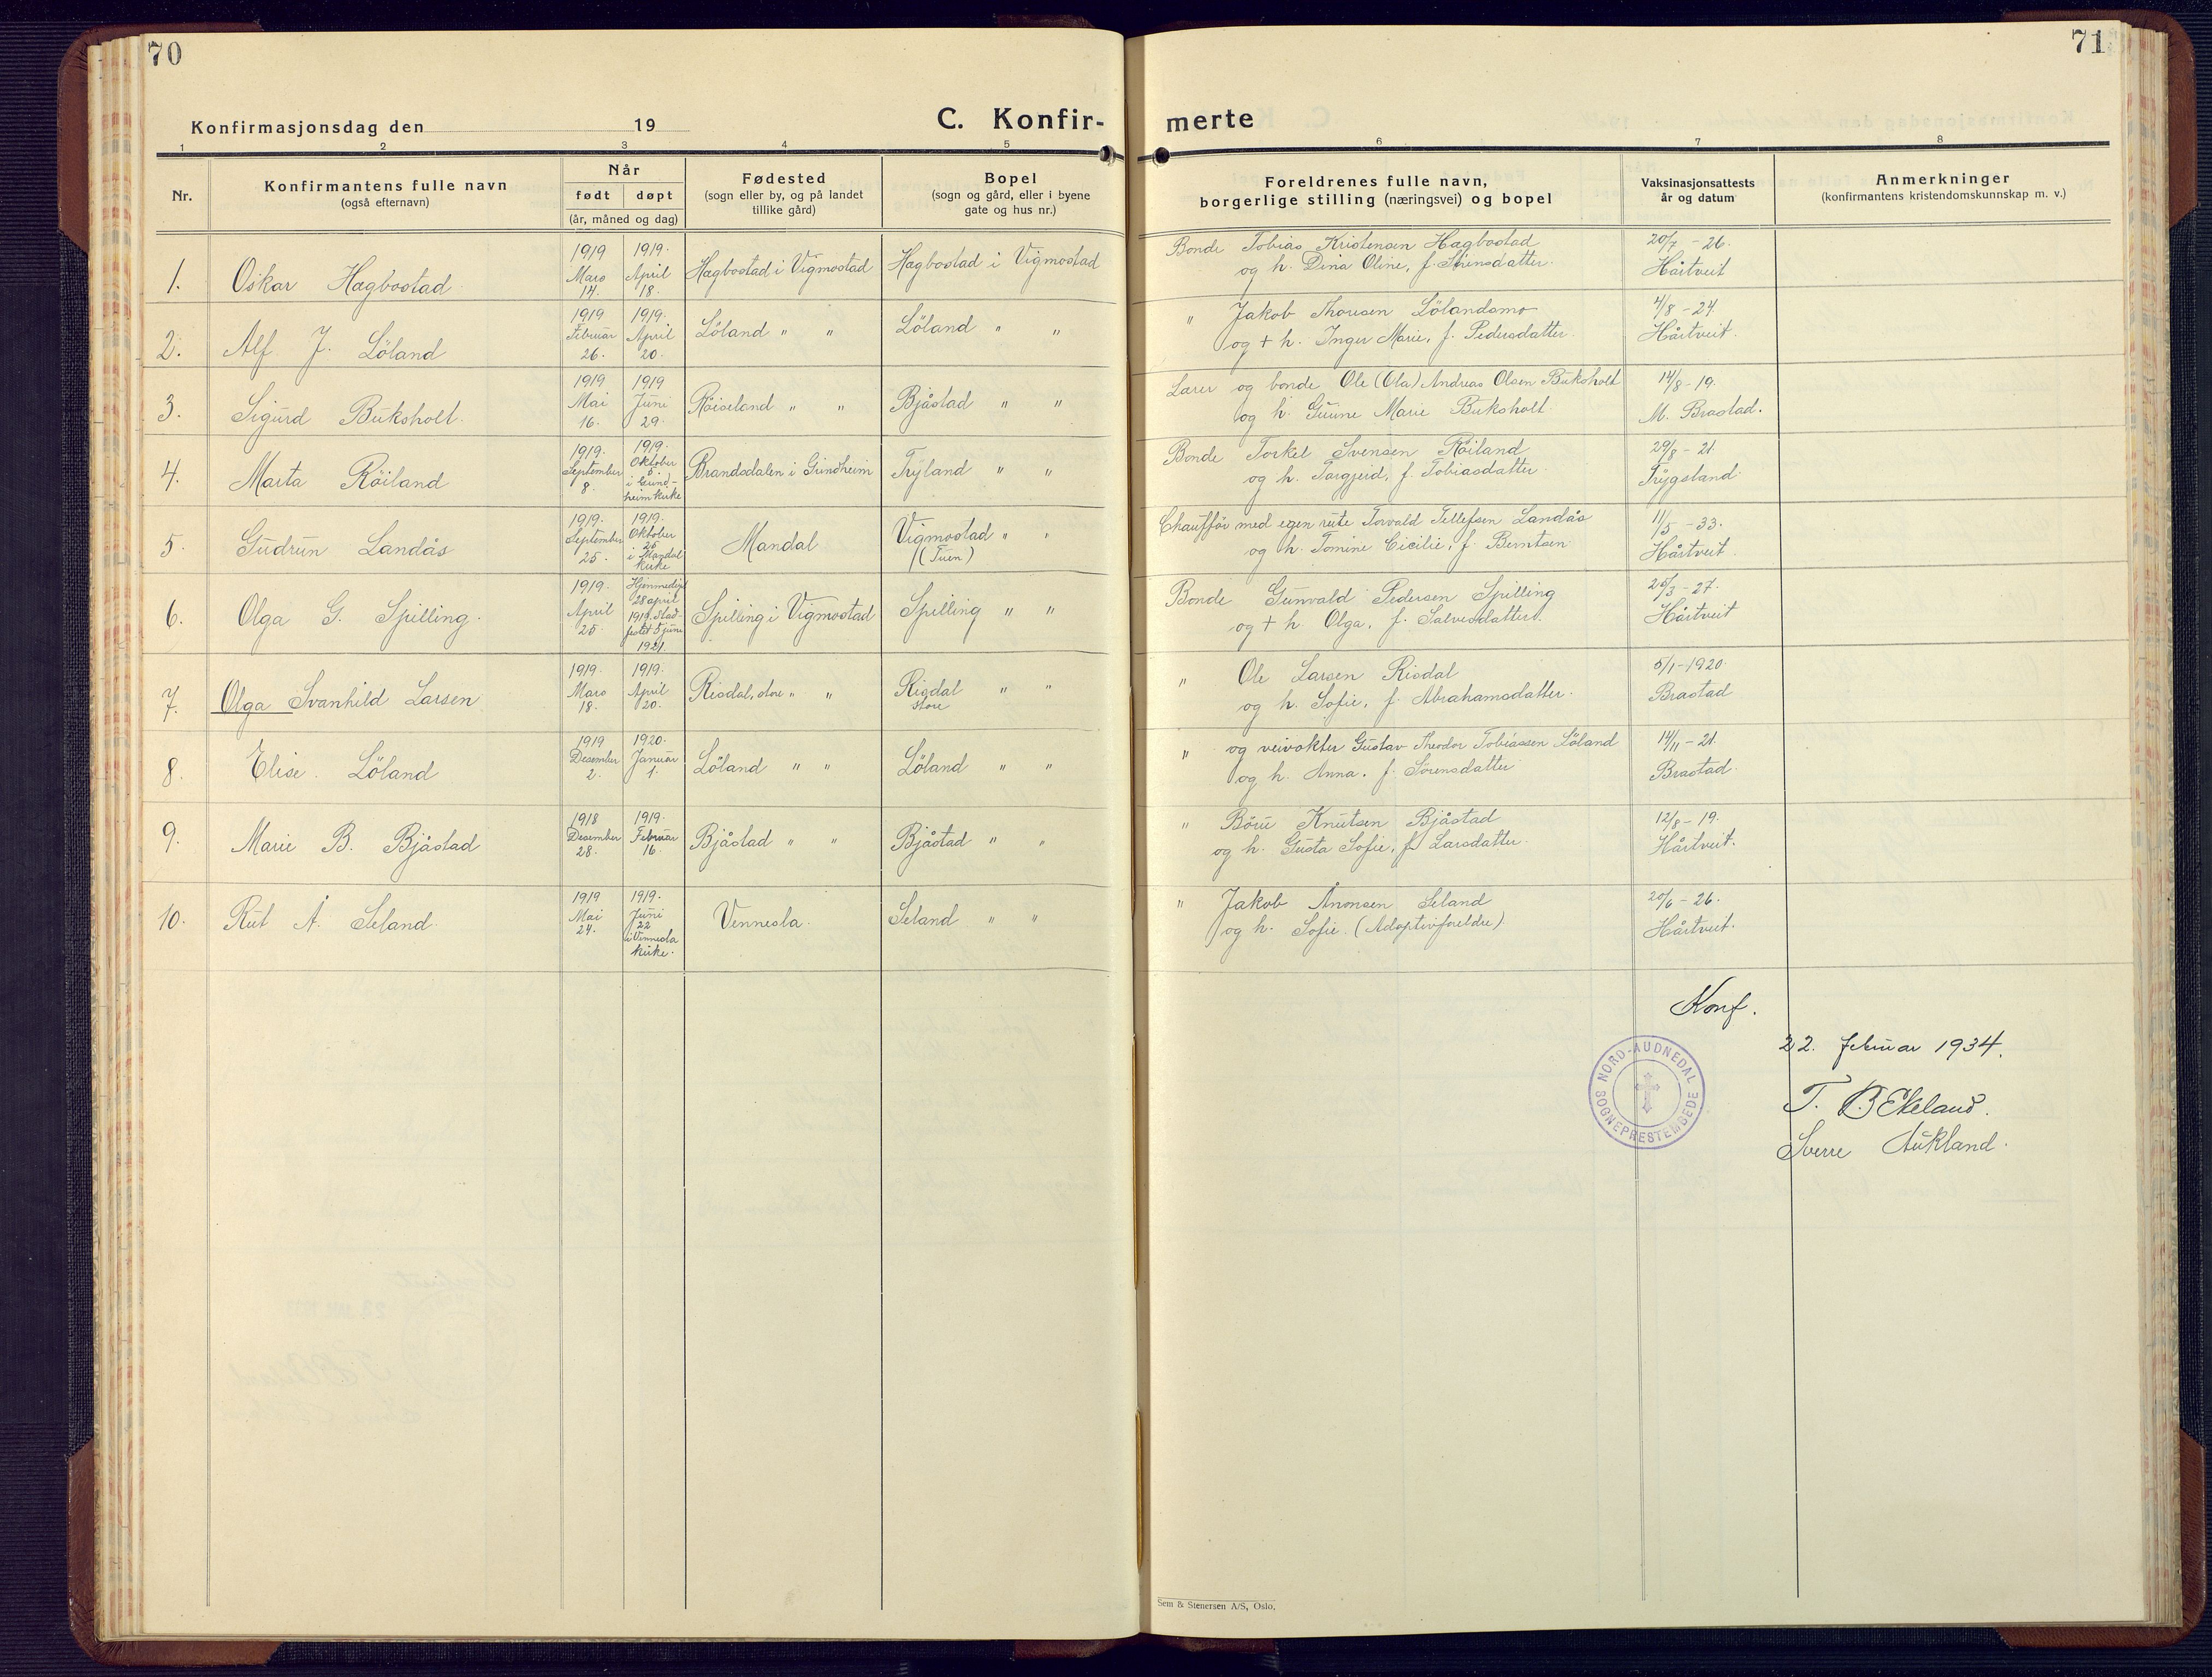 70
71
Konfirmasjonsdag den 19
C. Konfir-
merte
1 2 3 4 5 6 7 8
Nr.
Konfirmantens fulle navn
(også efternavn)
Når
født døpt
(år, måned og dag)
Fødested
(sogn eller by, og på landet
tillike gård)
Bopel
(sogn og gård, eller i byene
gate og hus nr.)
Foreldrenes fulle navn,
borgerlige stilling (næringsvei) og bopel
Vaksinasjonsattests
år og datum
Anmerkninger
(konfirmantens kristendomskunnskap m. v.)
1. Oskar Hægbostad
1919 Mars 14.
1919. April 18.
Hægbostad i Vigmostad
Hægbostad i Vigmostad
Bonde Tobias Kristensen Hægbostad
og h. Dina Oline, f.
20/7 - 26.
Hårtveit
2. Alf J. Löland
1919 Februar 26.
1919. April 20.
Löland " "
Löland " "
" Jakob Thorsen Lölandsmo
og + h. Inger Marie, f. Pedersdatter.
4/8 - 24.
Hårtveit.
3. Sigurd Buksholt.
1919 Mai 16.
1919 Juni 29.
Röiseland " "
Bjåstad " "
Lærer og bonde Ole (Ola) Andreas Olsen Buksholt
og h. Gunne Marie Buksholt
14/8 - 19.
M. Brastad.
4. Marta Röiland
1919. September 8.
1919. Oktober 5. i Grind-
heim kirke
Brandsdalen i Grindheim
Tryland " "
Bonde Torkel Svensen Röiland
og h. Targjerd, f. Tobiasdatter
29/8 - 21.
Trygsland
5. Gudrun Landås
1919. September 25.
1919. Oktober 25 i Mandal
kirke
Mandal
Vigmostad " "
(Tuen)
Chaufför med egen rute Torvald Tellefsen Landås
og h. Tomine Cicilie, f. Berntsen
11/5 - 33.
Hårtveit.
6. Olga G. Spilling.
1919. April 25
Hjemmedöpt
28 april
1919. Stad-
festet 5 juni
1921.
Spilling i Vigmostad
Spilling " "
Bonde Gunvald Pedersen Spilling
og + h. Olga, f. Salvesdatter.
25/3 - 27.
Hårtveit
7. Olga Svanhild Larsen
1919. Mars 18.
1919. April 20.
Risdal, store " "
Risdal " "
store
" Ole Larsen Risdal
og h. Sofie, f. Abrahamsdatter.
5/1 - 1920.
Brastad
8. Elise Löland
1919 Desember 2.
1920. Januar 1.
Löland " "
Löland " "
" og veivokter Gustav Theodor Tobiassen Löland
og h. Anna. f. Sörensdatter
14/11 - 21.
Brastad.
9. Marie B. Bjåstad
1918 Desember 28.
1919. Februar 16.
Bjåstad " "
Bjåstad " "
" Böru Knutsen Bjåstad
og h. Gusta Sofie, f. Larsdatter.
12/8 - 19.
Hårtveit.
10. Rut Å. Seland.
1919 Mai 24.
1919. Juni 22
i Vennesla
kirke.
Vennesla.
Seland " "
" Jakob Ånonsen Seland
og h. Sofie. (Adoptivforeldre)
20/6 - 26.
Hårtveit.
Konf.
22. februar 1934.
T. B Ekeland.
Sverre Aukland.
NORD-AUDNEDAL
SOGNEPRESTEMBEDE
Sem & Stenersen A/S, Oslo.